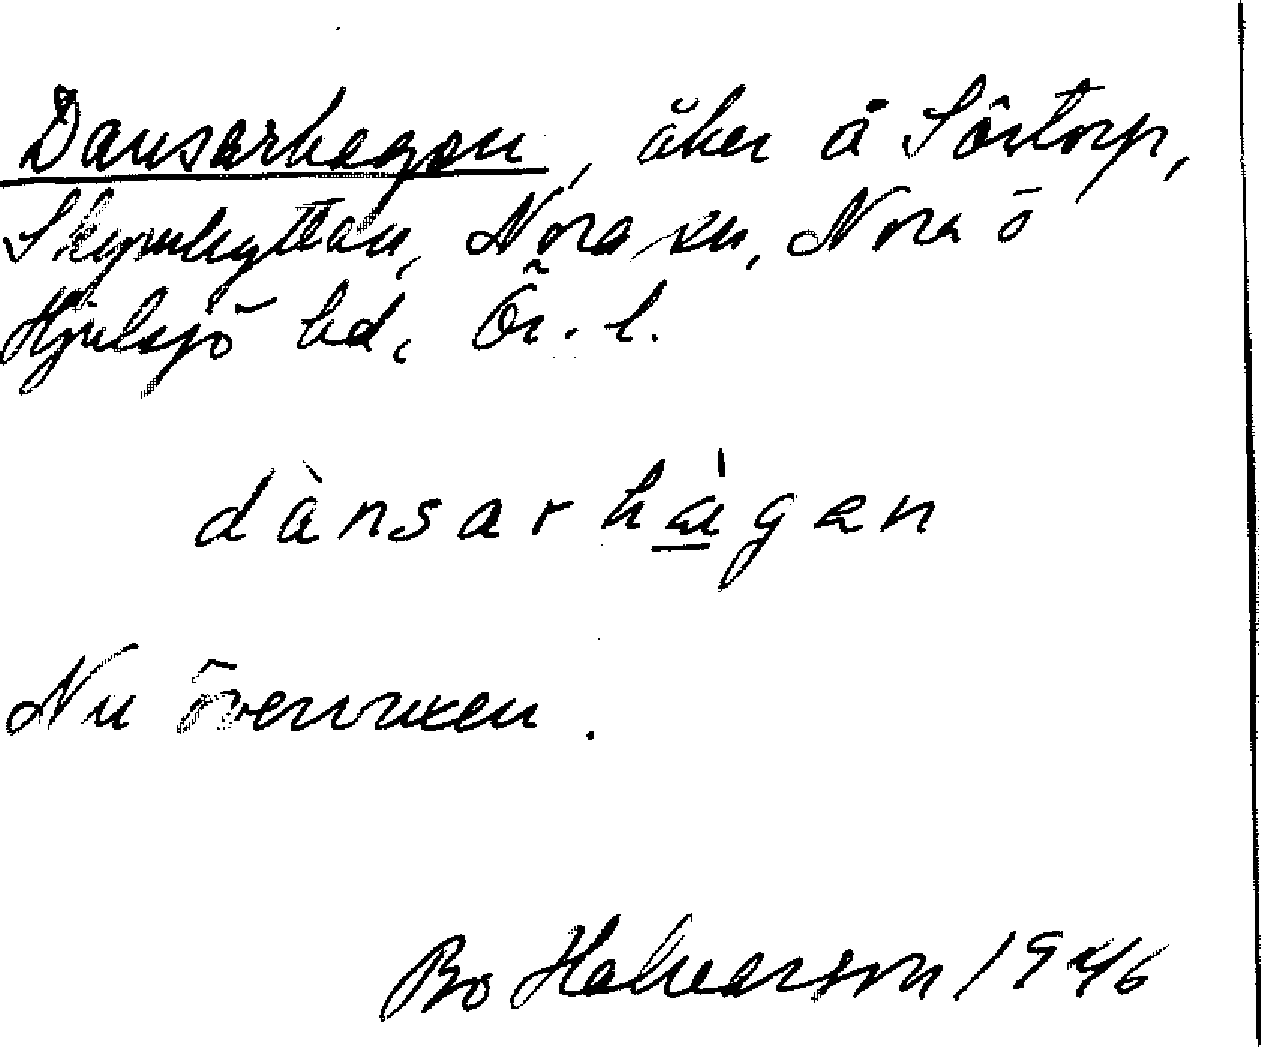 Dansarhagen, åker å Sörtorp,
Skrikarhyttan, Nora sn, Nora ö
Hjulsjö bd, Ör. l.
dànsarhàgen
Nu övervuxen.
Bo Halvarson 1946